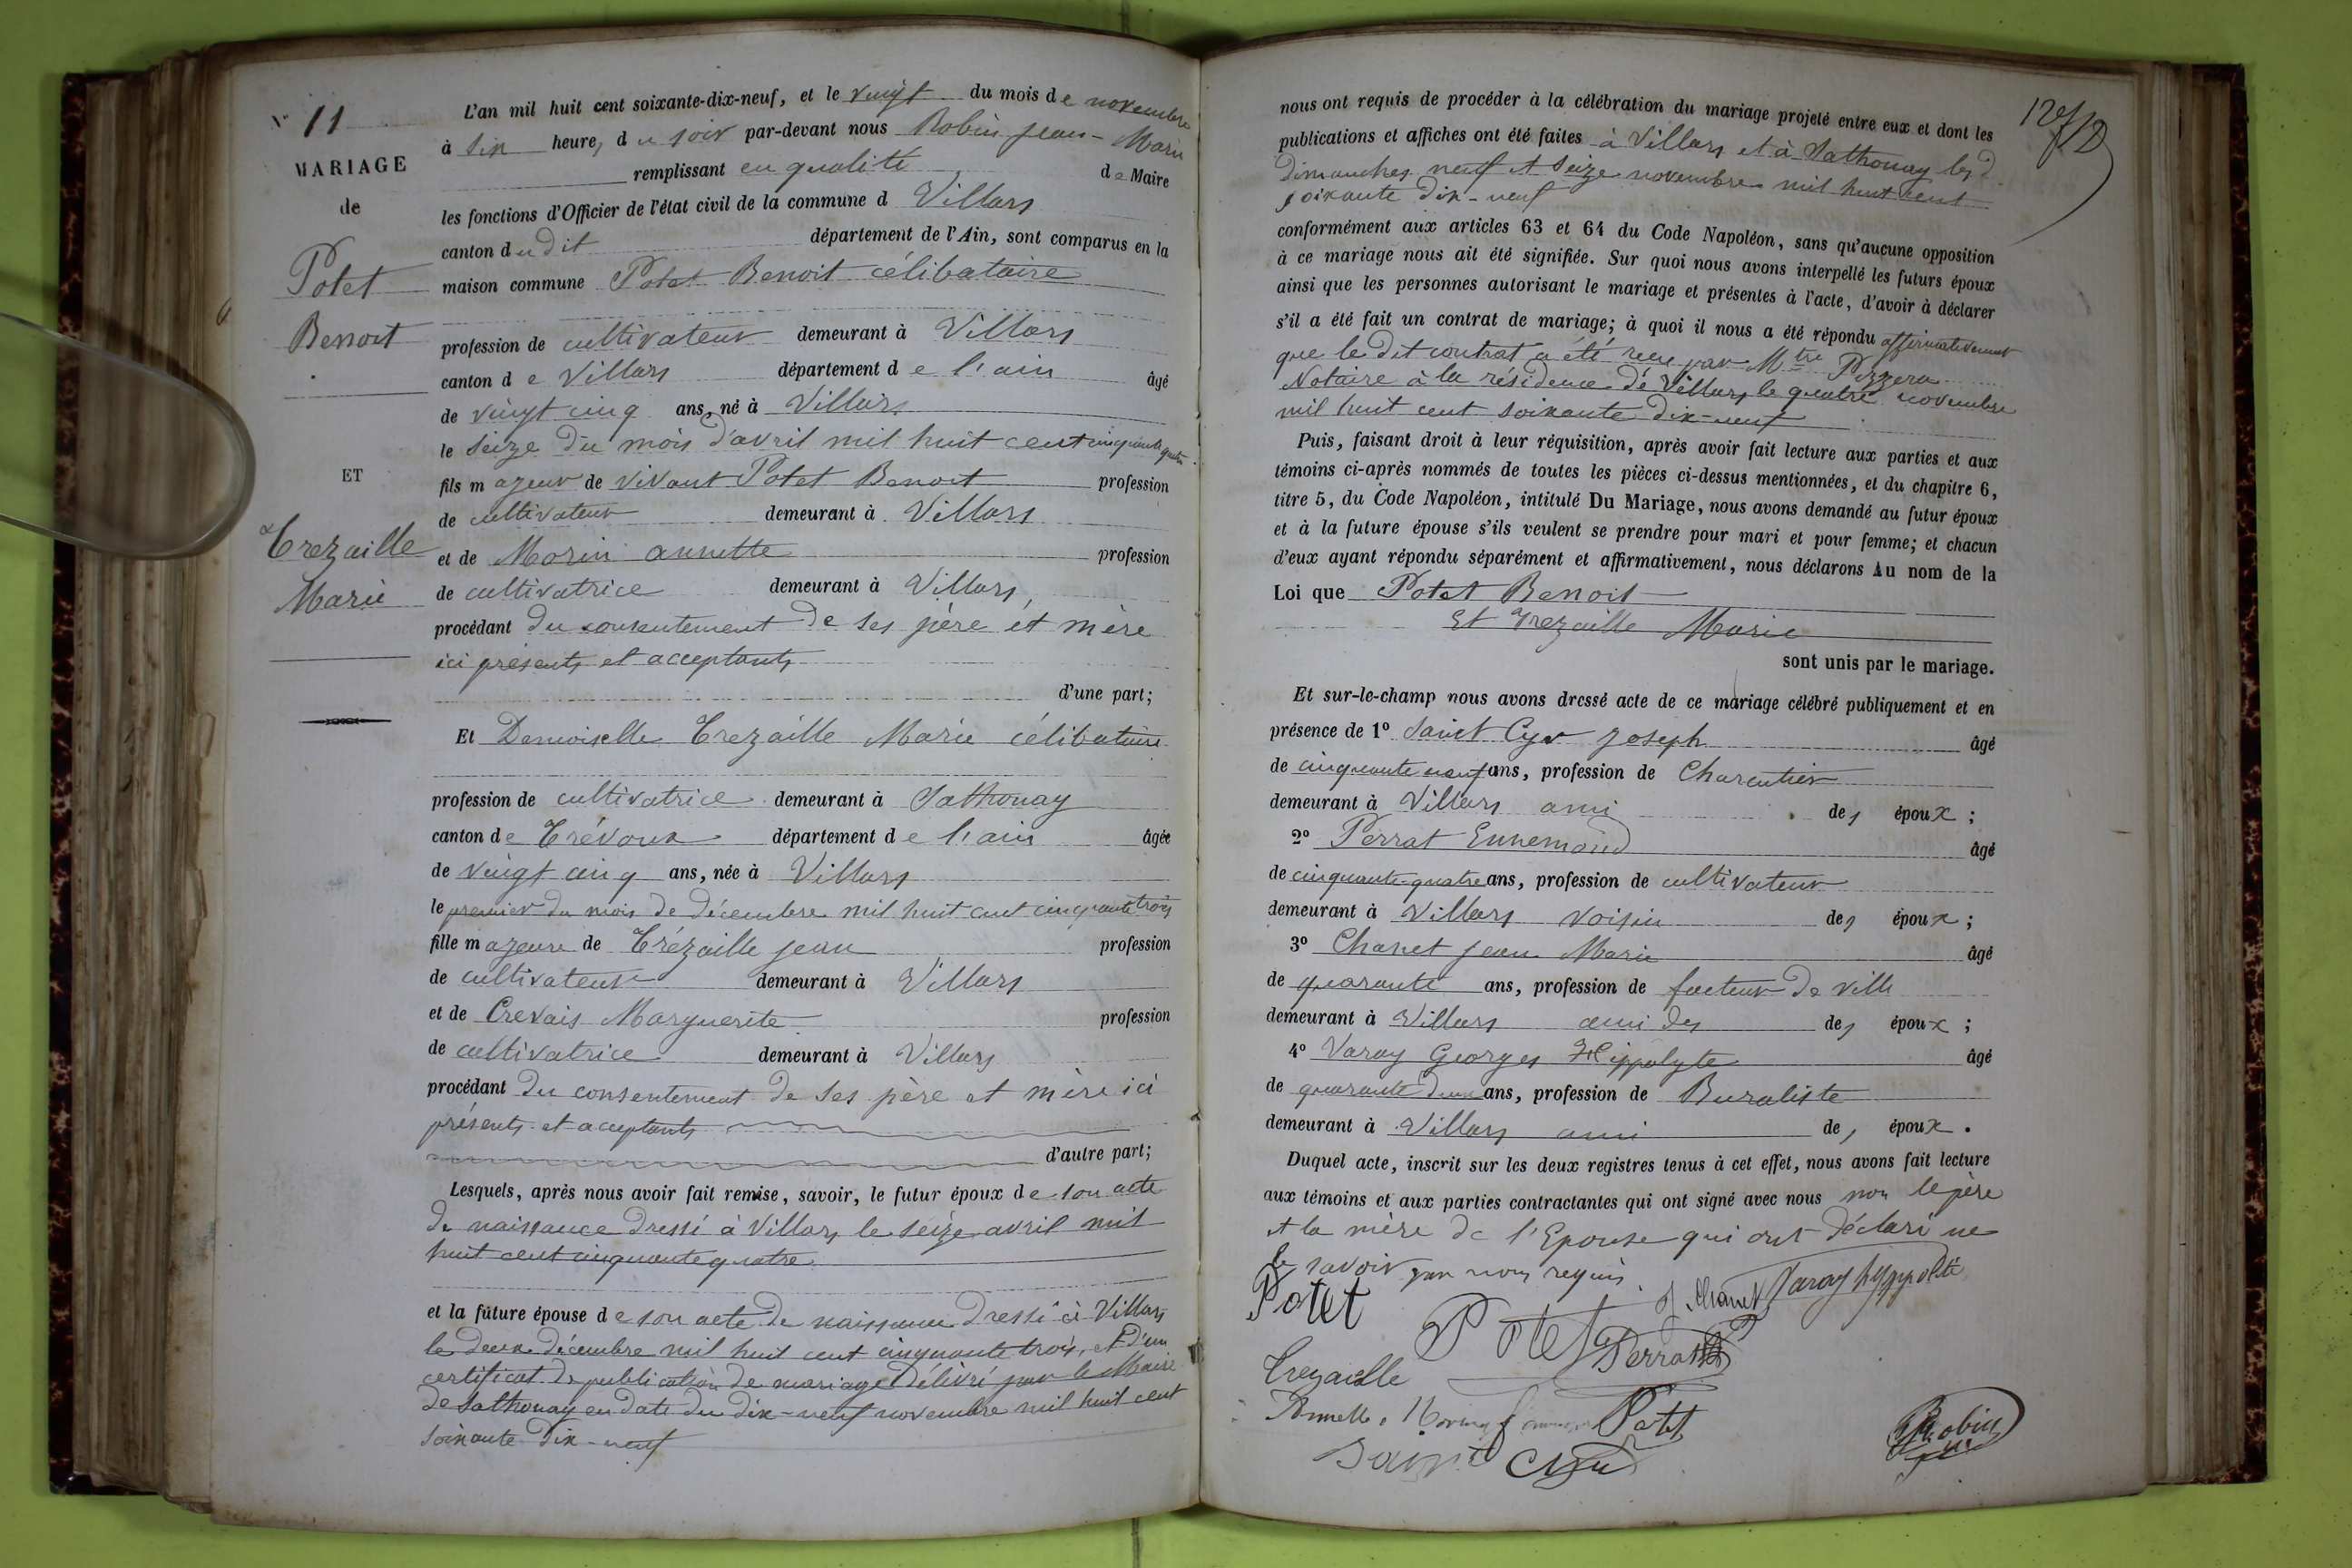 N° 11
MARIAGE
de
Potet
Benoit
ET
Trezaille
Marie
L'an mil huit cent soixante-dix-neuf, et le vingt du mois de novembre
à six heure, du soir par-devant nous Robin Jean-Marie
remplissant en qualité de Maire
les fonctions d'Officier de l'état civil de la commune d Villars
canton dudit département de l'Ain, sont comparus en la
maison commune Potet Benoit célibataire
profession de cultivateur demeurant à Villars
canton de Villars département de l'ain âgé
de vingt cinq ans, né à Villars
le seize du mois d'avril mil huit cent cinquante quatre
fils majeur de vivant Potet Benoit profession
de cultivateur demeurant à Villars
et de Morin annette profession
de cultivatrice demeurant à Villars,
procédant du consentement de ses père et mère
ici présents et acceptants
d'une part;
Et Demoiselle Trezaille Marie célibataire
profession de cultivatrice demeurant à Sathonay
canton de Trévoux département de l'ain âgée
de vingt cinq ans, née à Villars
le premier du mois de décembre mil huit cent cinquante trois
fille majeure de Trézaille jean profession
de cultivateur demeurant à Villars
et de Crevais Marguerite profession
de cultivatrice demeurant à Villars
procédant du consentement de ses père et mère ici
présents et acceptants
d'autre part;
Lesquels, après nous avoir fait remise, savoir, le futur époux de son acte
de naissance dressé à Villars le seize avril mil
huit cent cinquante quatre
et la future épouse de son acte de naissance dressé à Villars
le deux décembre mil huit cent cinquante trois, et d'un
certificat de publication de mariage délivré par le Maire
de Sathonay en date du dix-neuf novembre mil huit cent
soixante dix-neuf
nous ont requis de procéder à la célébration du mariage projeté entre eux et dont les
publications et affiches ont été faites à Villars et à Sathonay les
dimanches neuf et seize novembre mil huit cent
soixante dix-neuf
conformément aux articles 63 et 64 du Code Napoléon, sans qu'aucune opposition
à ce mariage nous ait été signifiée. Sur quoi nous avons interpellé les futurs époux
ainsi que les personnes autorisant le mariage et présentes à l'acte, d'avoir à déclarer
s'il a été fait un contrat de mariage; à quoi il nous a été répondu affirmativement
que le dit contrat a été reçu par Mtre Pizzera
Notaire à la résidence de Villars le quatre novembre
mil huit cent soixante dix-neuf
Puis, faisant droit à leur réquisition, après avoir fait lecture aux parties et aux
témoins ci-après nommés de toutes les pièces ci-dessus mentionnées, et du chapitre 6,
titre 5, du Code Napoléon, intitulé Du Mariage, nous avons demandé au futur époux
et à la future épouse s'ils veulent se prendre pour mari et pour femme; et chacun
d'eux ayant répondu séparément et affirmativement, nous déclarons Au nom de la
Loi que Potet Benoit
Et Trezaille Marie
sont unis par le mariage.
Et sur-le-champ nous avons dressé acte de ce mariage célébré publiquement et en
présence de 1° Saint Cyr Joseph âgé
de cinquante neuf ans, profession de Charentier
demeurant à Villars ami des époux;
2° Perrat Ennemond âgé
de cinquante-quatre ans, profession de cultivateur
demeurant à Villars voisin des époux;
3° Chanet Jean Marie âgé
de quarante ans, profession de facteur de ville
demeurant à Villars ami des des époux;
4° Varay Georges Hippolyte âgé
de quarante deux ans, profession de Buraliste
demeurant à Villars ami des époux.
Duquel acte, inscrit sur les deux registres tenus à cet effet, nous avons fait lecture
aux témoins et aux parties contractantes qui ont signé avec nous non le père
et la mère de l'Epouse qui ont déclaré ne
le savoir par nous requis.
Potet Potet Chanet Varay hyppolite
Perrat
Trezaille
Annette Morin femme Potet
Saint Cyr
Robin